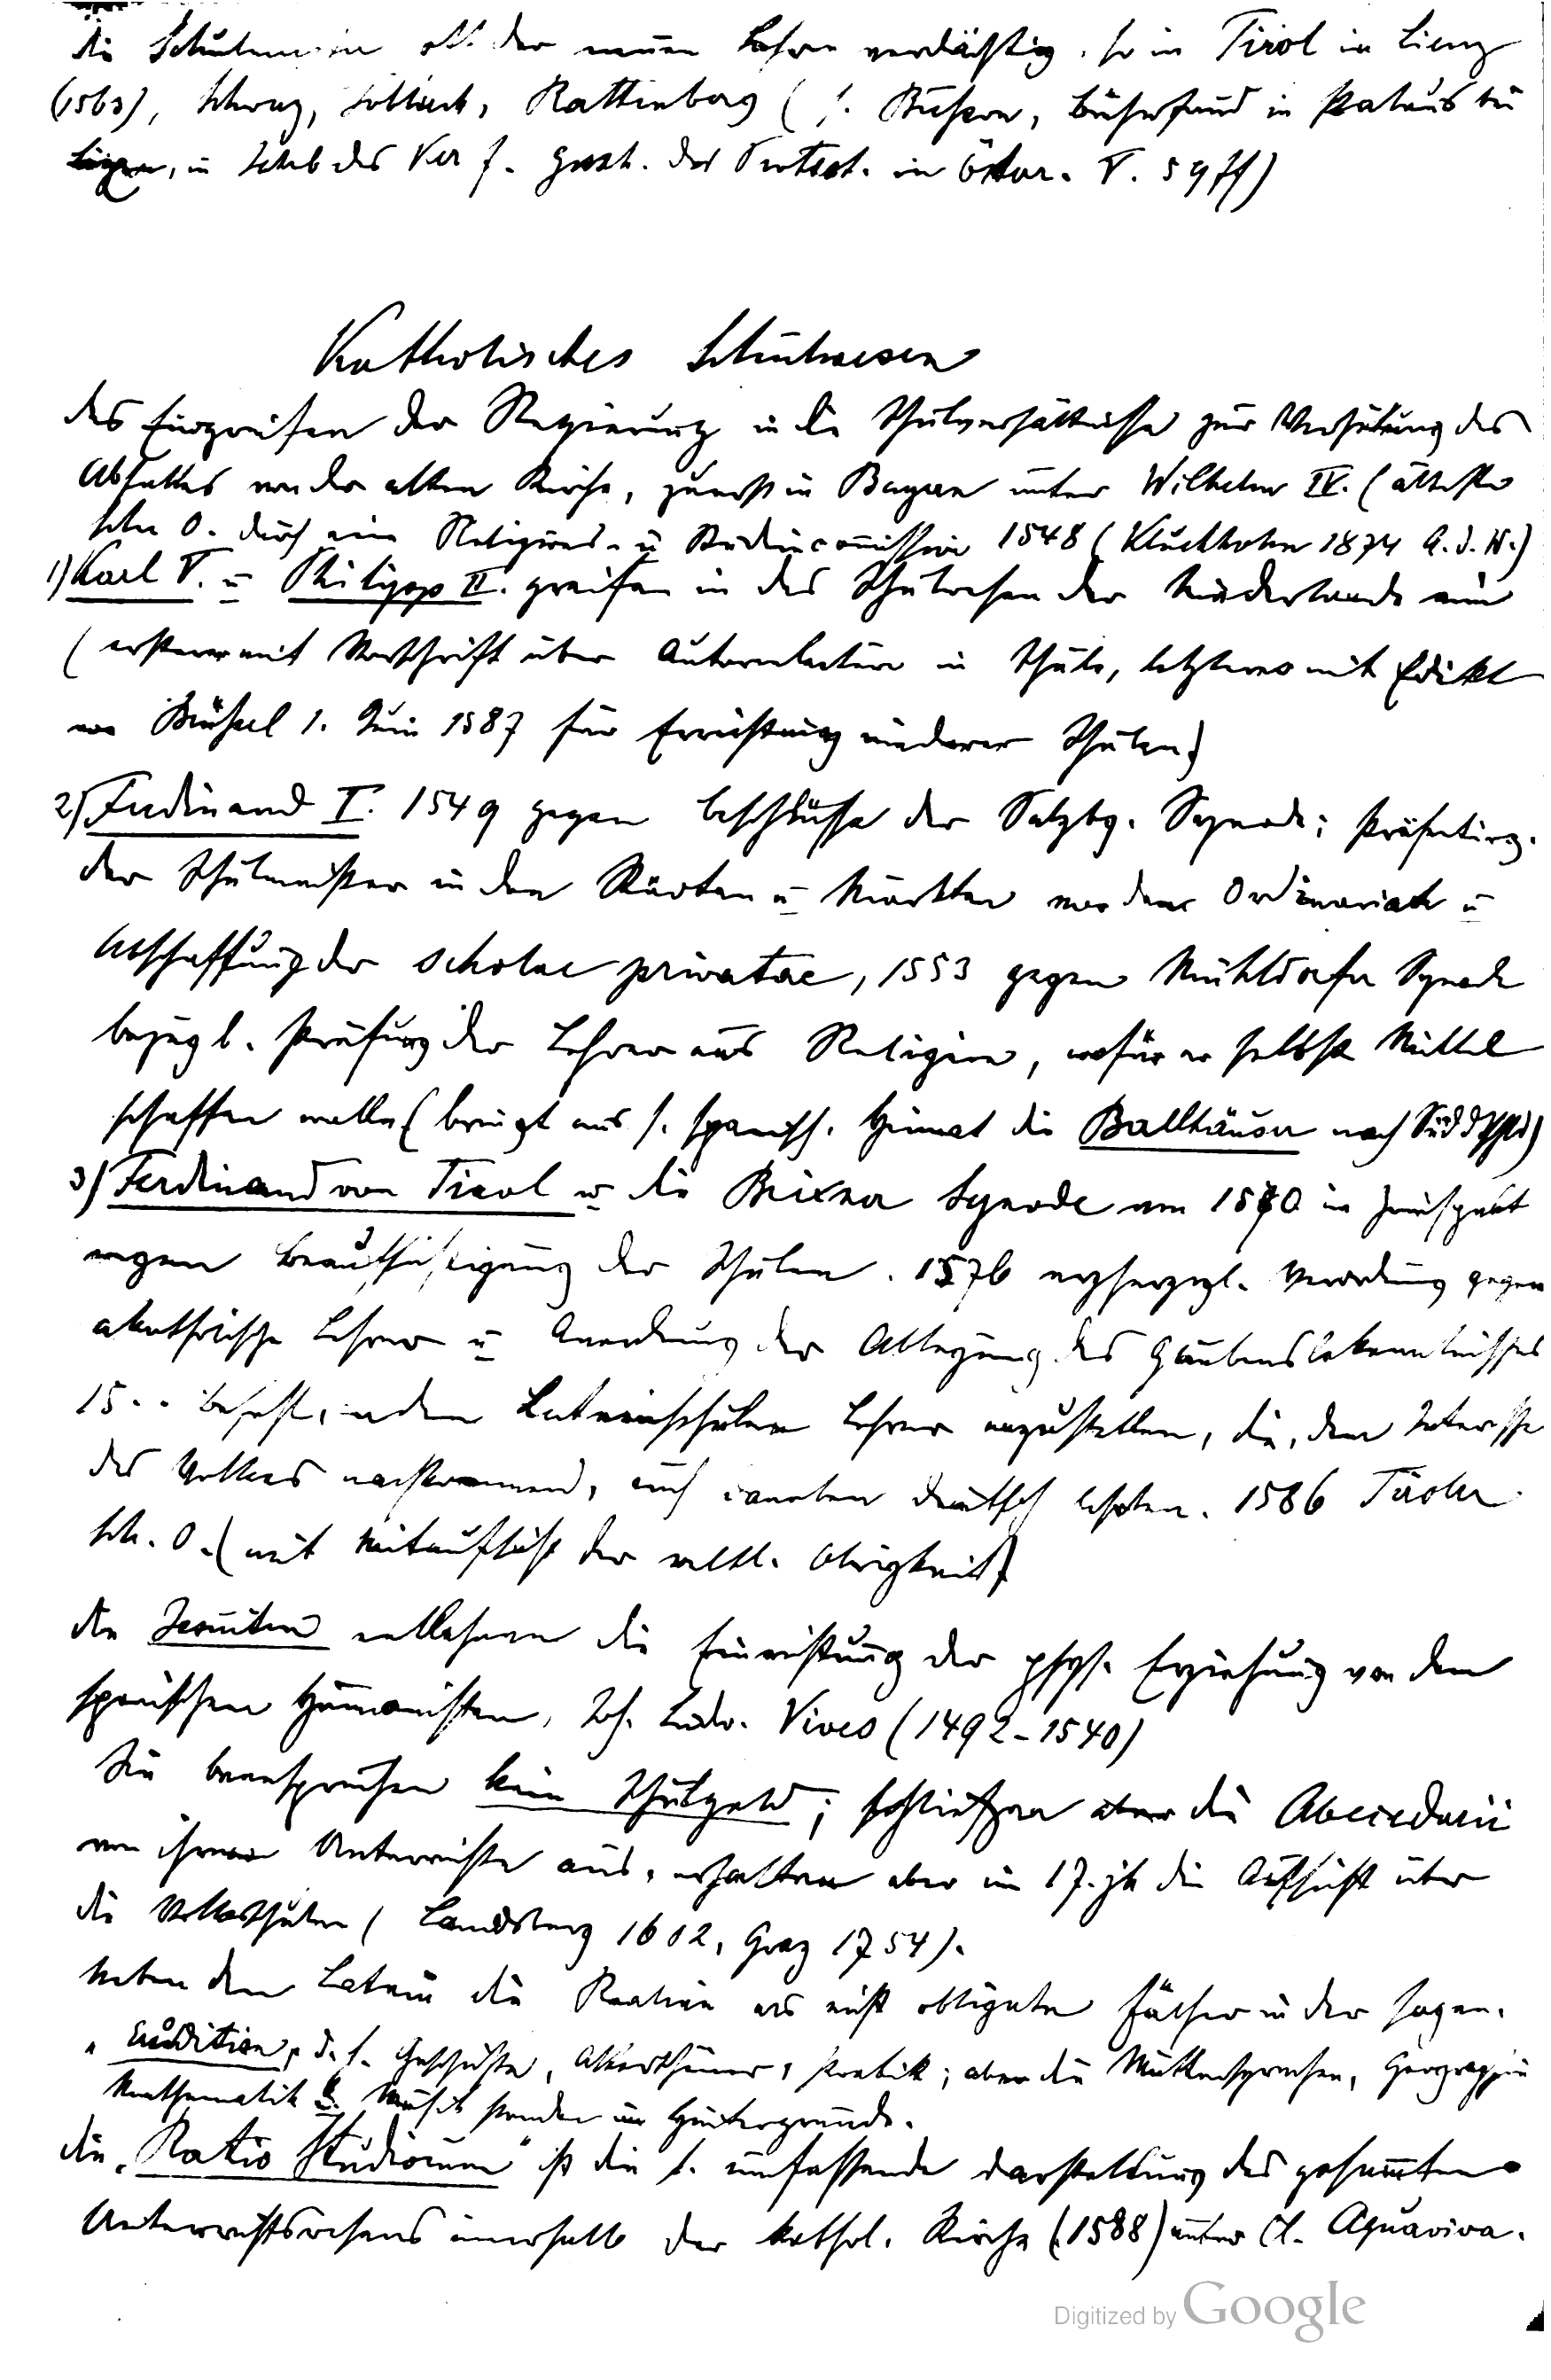 die Schulmeister oft der neuen Lehre verdächtig. so in Tirol in Lienz
(1563), Schwaz, Rattenberg (s. Bücherfund in bei
in Jahrb des Ver f. Gesch. des Protest. in Österr. V. 59 ff)
Katholisches Schulwesen
des Eingreifen der Regierung in die Schulverhältnisse zur Verhütung des
Abfalles von der alten Kirche, zuerst in Bayern unter Wilhelm IV. (älteste
Schu O. durch eine Religions- u Studiencommission 1548 (Kluckhohn 1874 A. d. W.)
1) Karl V. u Philipp II. greifen in das Schulwesen der Niederlande ein
(ersterer mit Vorschrift über Autorenlectüre in Schule, letzterer mit Edikt
von Brüssel 1. Juni 1587 für Errichtung niederer Schulen)
2) Ferdinand I. 1549 gegen Beschlüsse der Salzbg. Synode; Präsentirg.
der Schulmeister in den Städten u Märkten vor dem Ordinariate u
Abschaffung der scholae privatae, 1553 gegen Mühldorfer Synode
bezügl. Prüfung der Lehrer aus Religion, wofür er selbst Mittel
schaffen wolle (bringt aus s. spanisch. Heimat die Ballhäuser nach Süddtschld)
3) Ferdinand von Tirol u die Brixner Synode von 1570 in Zwiespalt
wegen Beaufsichtigung der Schulen. 1576 erzherzogl. Verordnung gegen
akatholische Lehrer u Anordnung der Ablegung des Glaubensbekenntnisses
15.. befohlen, an den Lateinschulen Lehrer anzustellen, die, dem Interesse
des Volkes nachkommend, auch daneben deutsch lehrten. 1586 Tiroler
Sch. O. (mit Mitaufsicht der weltl. Obrigkeit)
die Jesuiten entlehnen die Einrichtung der phys. Erziehung von dem
spanischen Humanisten, Joh. Ludw. Vives (1492-1540)
Sie beanspruchen kein Schulgeld; schließen aber die Abecedarii
von ihrem Unterrichte aus, erhalten aber im 17. Jh die Aufsicht über
die Volksschulen (Landsberg 1602, Graz 1754).
Neben dem Latein die Realien als nicht obligate Fächer in der sogen.
„Erudition„ d. h. Geschichte, Alterthümer, Poetik; aber die Muttersprachen, Geographie
Mathematik u. Musik standen im Hintergrunde.
die „Ratio Studiorum" ist die 1. umfassende Darstellung des gesammten
Unterrichtswesens innerhalb der kathol. Kirche (1588) unter Cl. Aquaviva.
Digitized by Google